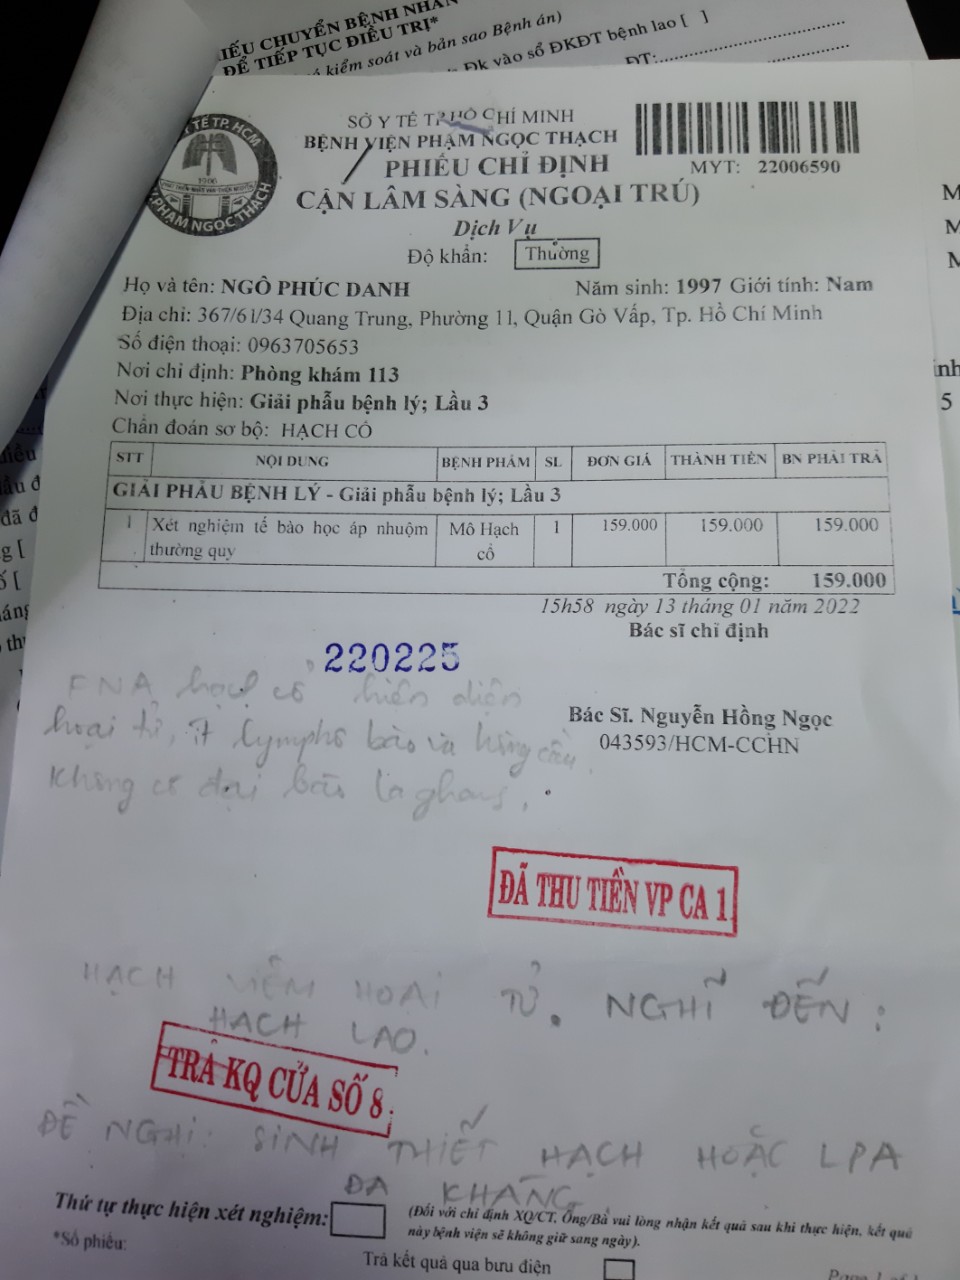 IẾU CHUYỂN BỆNH NHÂN
ĐỂ TIẾP TỤC ĐIỀU TRỊ*
kiểm soát và bản sao Bệnh án)
Đk vào sổ ĐKĐT bệnh lao [ ]
ĐT:
Y TẾ TP. HCM
1906
PHẠM NGỌC THẠCH
SỞ Y TẾ TP.HỒ CHÍ MINH
BỆNH VIỆN PHẠM NGỌC THẠCH
PHIẾU CHỈ ĐỊNH
MYT: 22006590
CẬN LÂM SÀNG (NGOẠI TRÚ)
Dịch Vụ
Độ khẩn: Thường
Họ và tên: NGÔ PHÚC DANH Năm sinh: 1997 Giới tính: Nam
Địa chỉ: 367/61/34 Quang Trung, Phường 11, Quận Gò Vấp, Tp. Hồ Chí Minh
Số điện thoại: 0963705653
Nơi chỉ định: Phòng khám 113
Nơi thực hiện: Giải phẫu bệnh lý; Lầu 3
Chẩn đoán sơ bộ: HẠCH CỔ
STT NỘI DUNG BỆNH PHẨM SL ĐƠN GIÁ THÀNH TIỀN BN PHẢI TRẢ
GIẢI PHẪU BỆNH LÝ - Giải phẫu bệnh lý; Lầu 3
1 Xét nghiệm tế bào học áp nhuộm Mô Hạch 1 159.000 159.000 159.000
thường quy cổ
Tổng cộng: 159.000
15h58 ngày 13 tháng 01 năm 2022
Bác sĩ chỉ định
220225
FNA hạch cổ hiện diện
hoại tử, ít lympho bào và hồng cầu.
Không có đại bào langhans.
Bác Sĩ. Nguyễn Hồng Ngọc
043593/HCM-CCHN
ĐÃ THU TIỀN VP CA 1
HẠCH VIÊM HOẠI TỬ. NGHĨ ĐẾN:
HẠCH LAO.
TRẢ KQ CỬA SỐ 8
ĐỀ NGHỊ: SINH THIẾT HẠCH HOẶC LPA
ĐA KHÁNG
Thứ tự thực hiện xét nghiệm:
(Đối với chỉ định XQ/CT, Ông/Bà vui lòng nhận kết quả sau khi thực hiện, kết quả
này bệnh viện sẽ không giữ sang ngày).
*Số phiếu:
Trả kết quả qua bưu điện